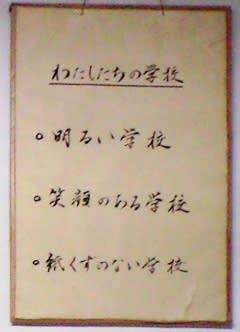 わたしたちの学校
○明るい学校
○笑顔のある学校
○紙くずのない学校